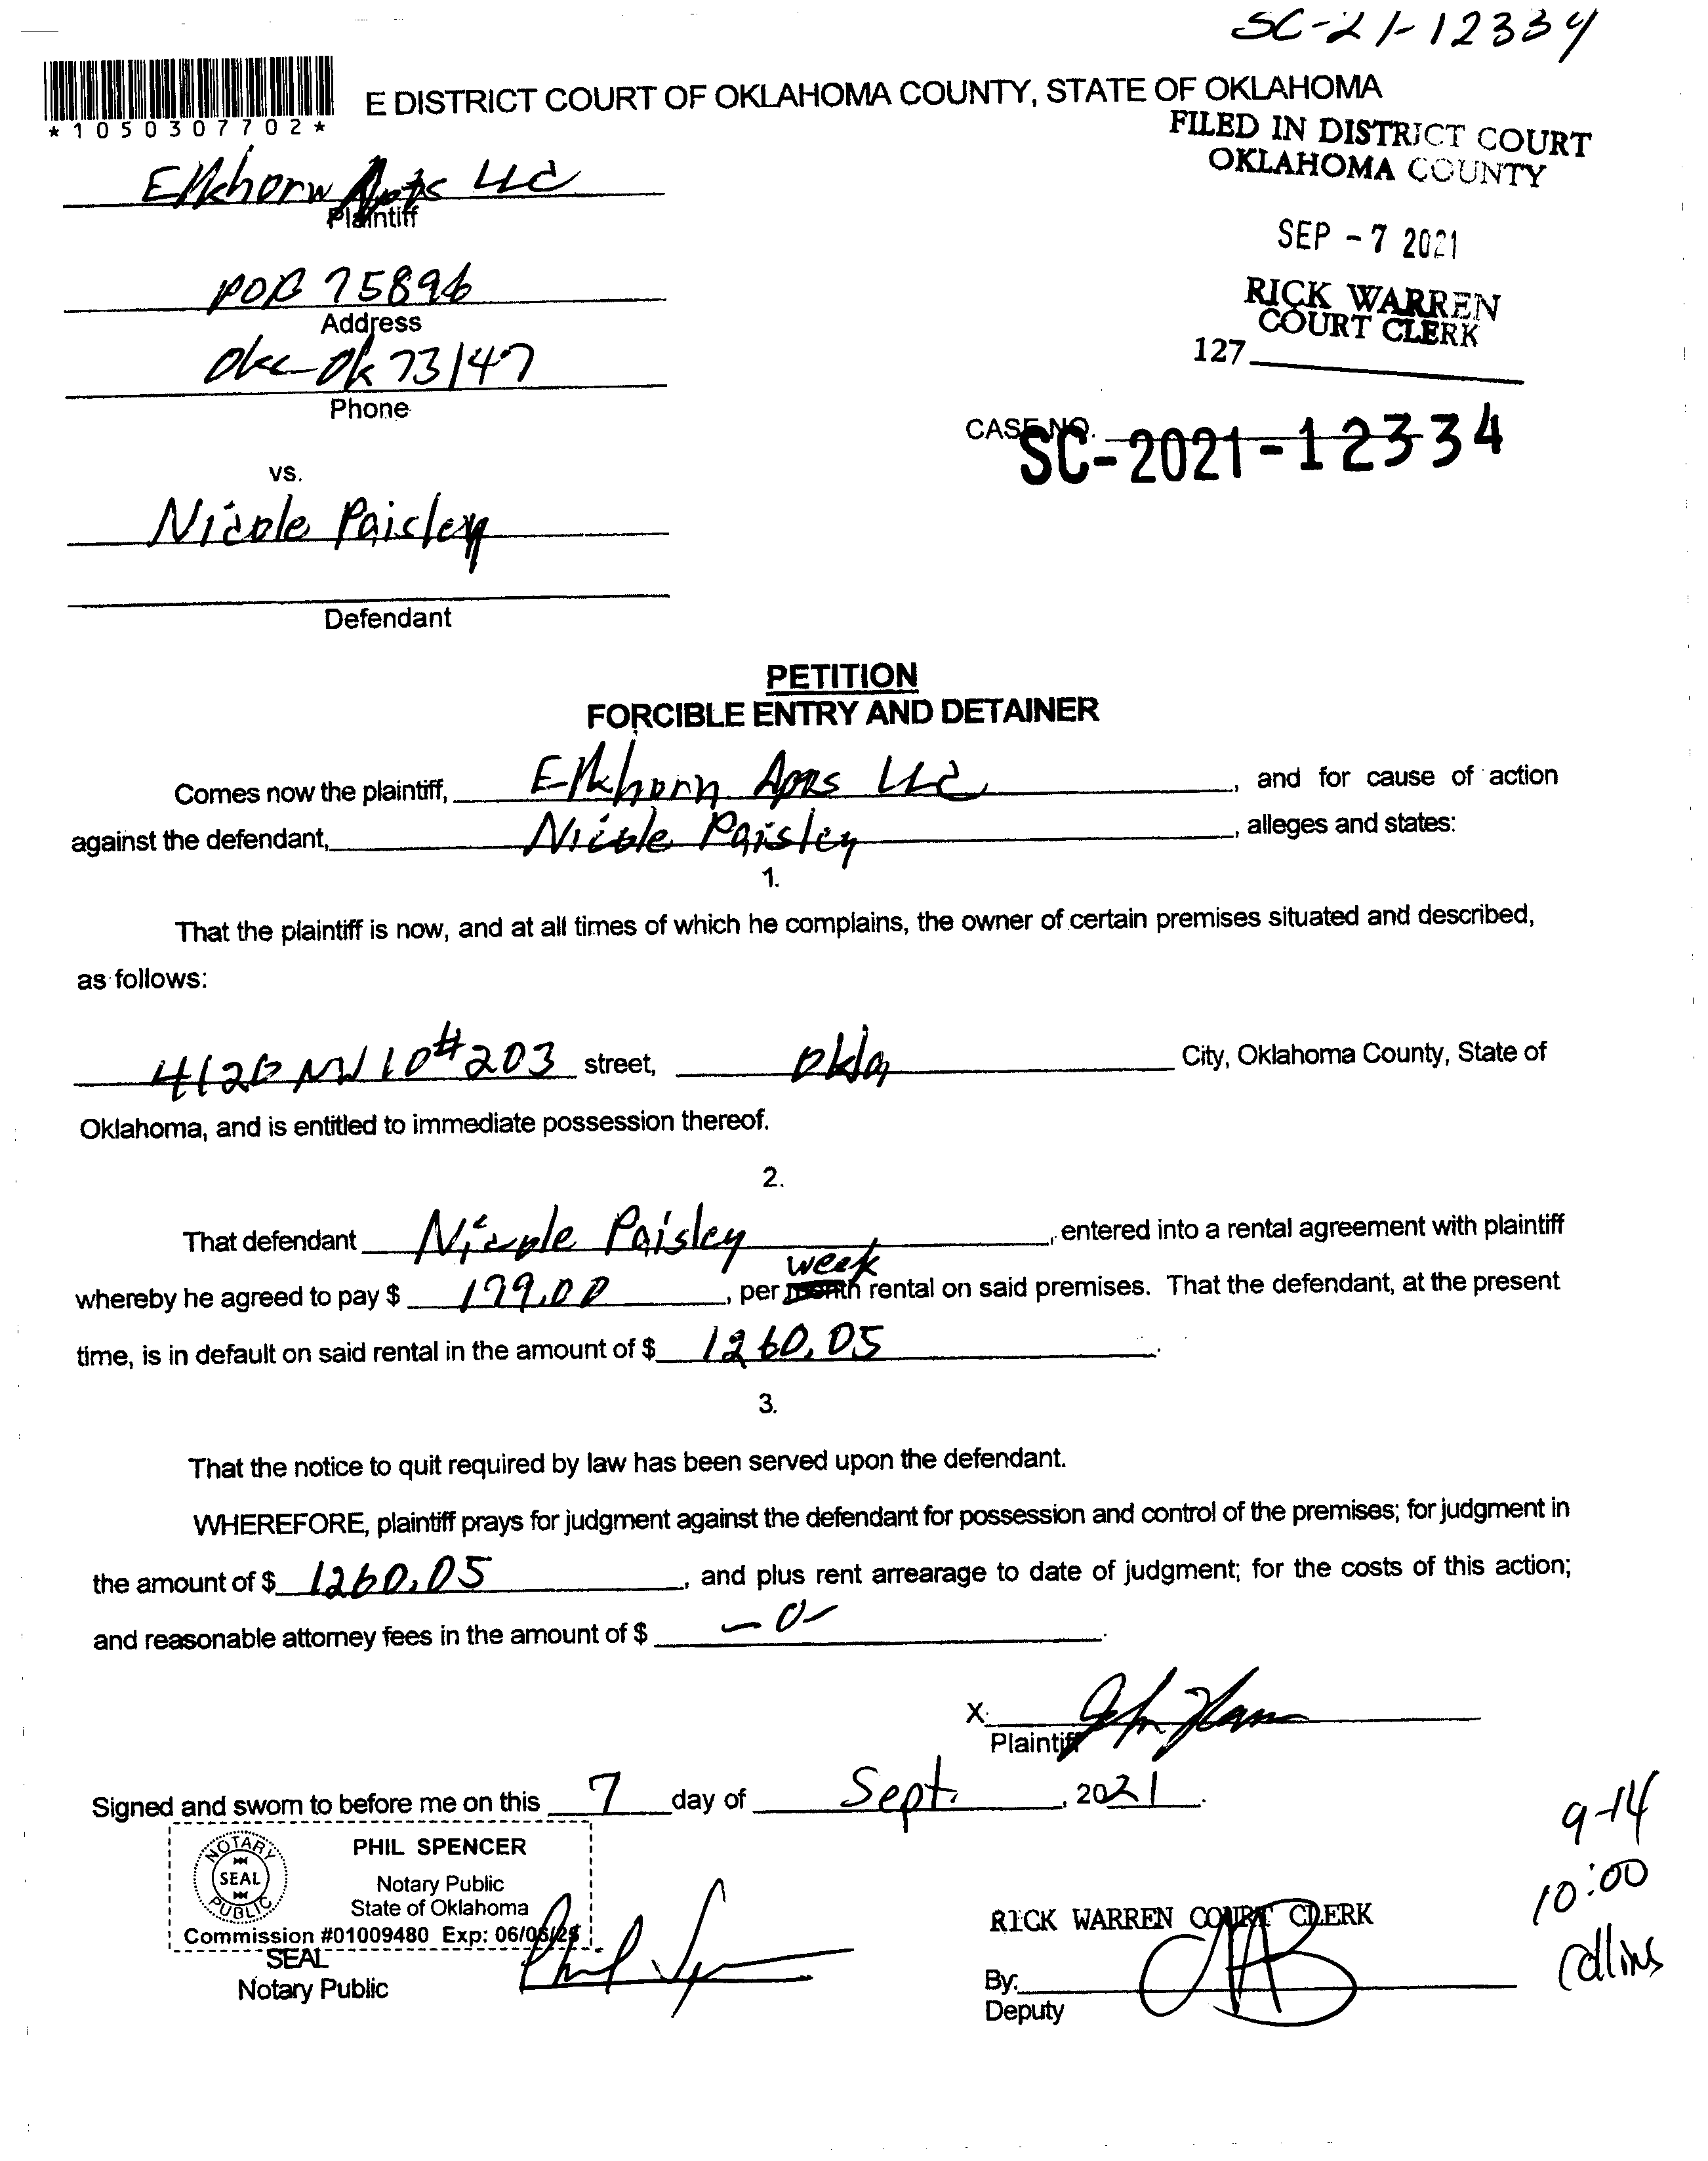 SC-21-12334
*1050307702*
E DISTRICT COURT OF OKLAHOMA COUNTY, STATE OF OKLAHOMA
FILED IN DISTRICT COURT
OKLAHOMA COUNTY
Elkhorn Apts LLC
Plaintiff
SEP - 7 2021
POB 75896
Address
RICK WARREN
COURT CLERK
127
Okc Ok 73147
Phone
CASE NO.
SC-2021-12334
vs.
Nicole Paisley
Defendant
PETITION
FORCIBLE ENTRY AND DETAINER
Comes now the plaintiff, Elkhorn Apts LLC, and for cause of action
against the defendant, Nicole Paisley, alleges and states:
1.
That the plaintiff is now, and at all times of which he complains, the owner of certain premises situated and described,
as follows:
4120 NW 10 #203 street, Okla City, Oklahoma County, State of
Oklahoma, and is entitled to immediate possession thereof.
2.
That defendant Nicole Paisley, entered into a rental agreement with plaintiff
week
whereby he agreed to pay $ 199.00, per month rental on said premises. That the defendant, at the present
time, is in default on said rental in the amount of $ 1260.05.
3.
That the notice to quit required by law has been served upon the defendant.
WHEREFORE, plaintiff prays for judgment against the defendant for possession and control of the premises; for judgment in
the amount of $ 1260.05, and plus rent arrearage to date of judgment; for the costs of this action;
and reasonable attorney fees in the amount of $ -0-.
X
Plaintiff
Signed and sworn to before me on this 7 day of Sept., 2021.
9-14
10:00
Collins
NOTARY PUBLIC
SEAL
PHIL SPENCER
Notary Public
State of Oklahoma
Commission #01009480 Exp: 06/06/25
SEAL
Notary Public
Phil Spencer
RICK WARREN COURT CLERK
By:
Deputy